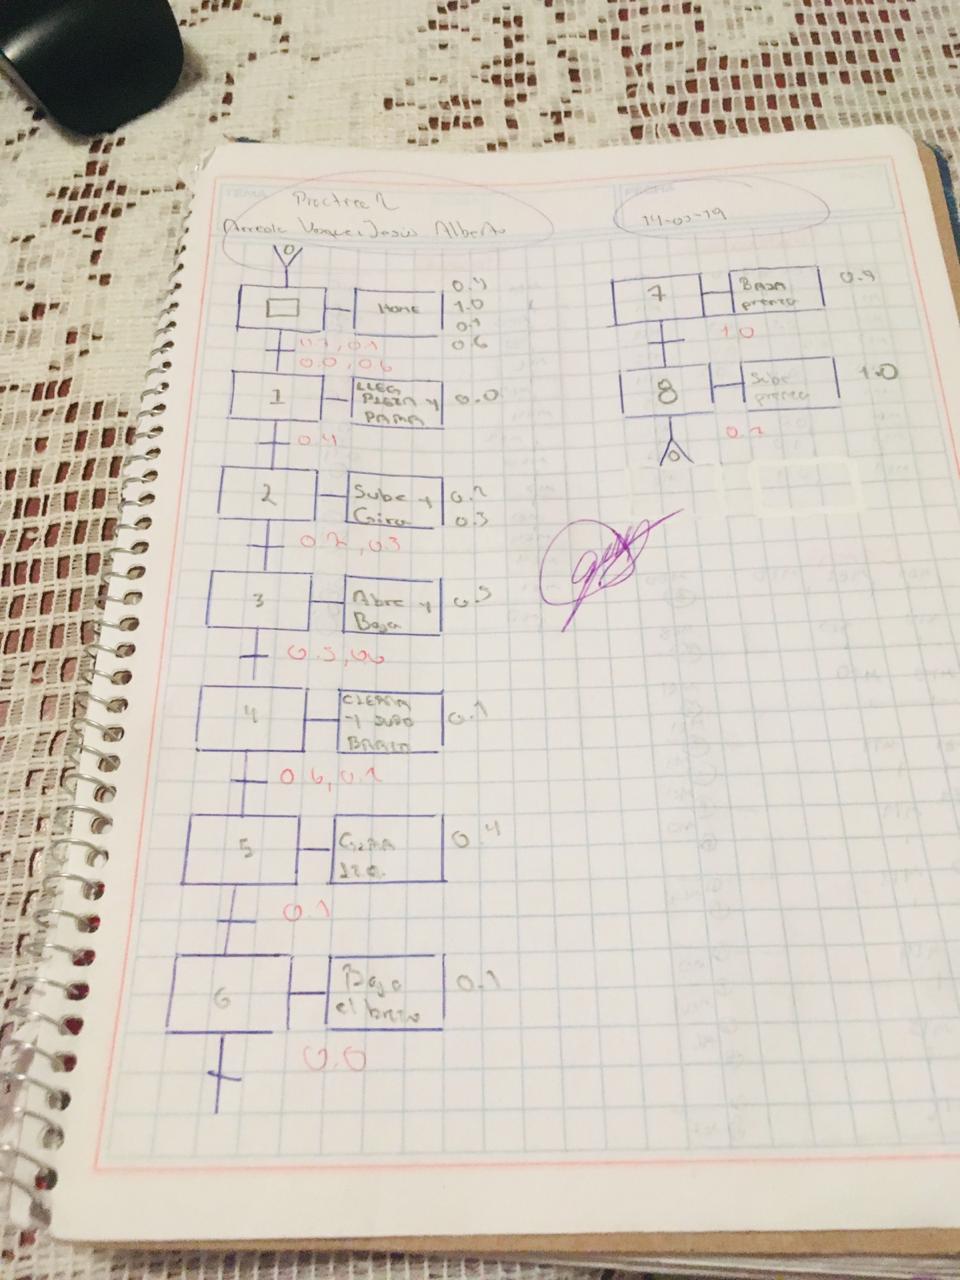 Practica 2
Jesus Alberto
14-02-19
0
HOME
0.4
1.0
0.1
0.6
0.0, 0.6
1
LLEG
PIEZA y
PARA
0.0
0.4
2
Sube y
Gira
0.2
0.3
0.2, 0.3
3
Abre y
Baja
0.5
0.5, 0.0
4
CIERRA
y SUBE
BRAZO
0.1
0.6, 0.2
5
GIRA
IZQ.
0.4
0.1
6
Baja
el brazo
0.1
0.0
7
BAJA
prensa
1.0
8
Sube
prensa
1.0
0